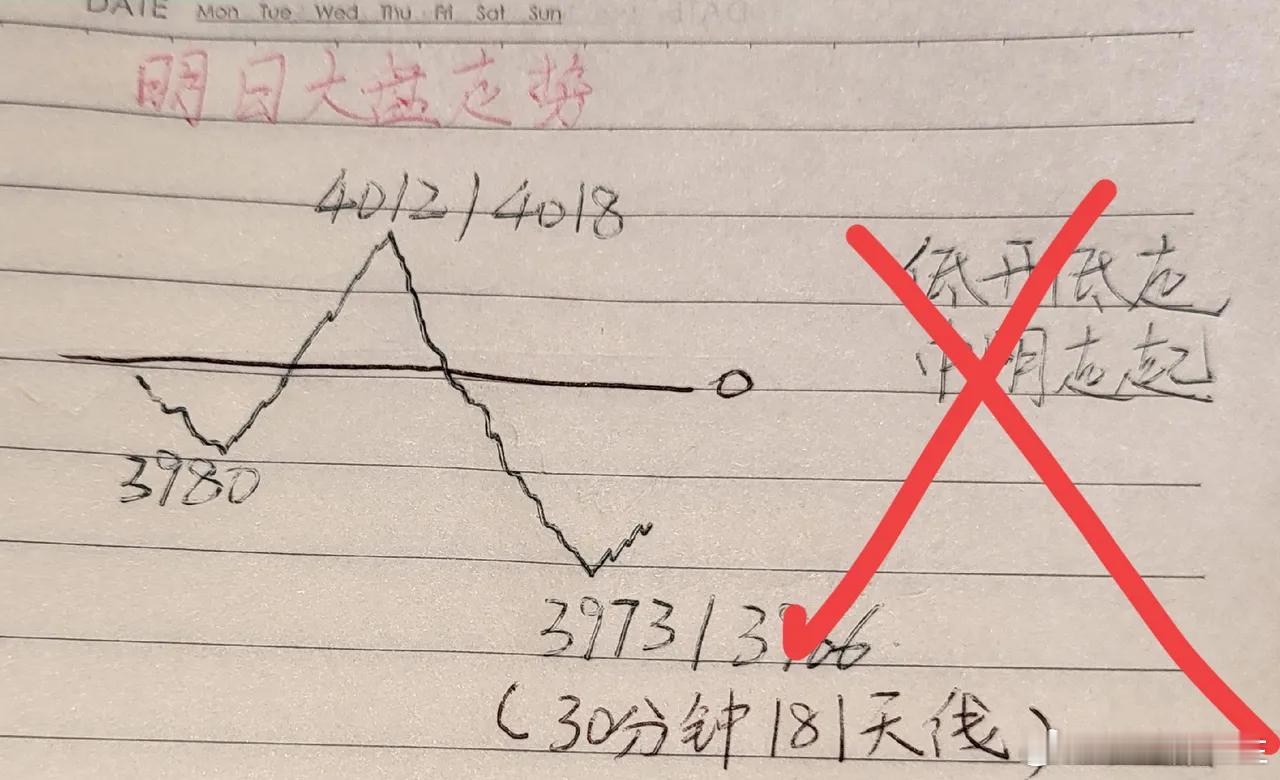 DATE Mon Tue Wed Thu Fri Sat Sun
明日大盘走势
4012/4018
低开低走
中阴走起
0
3980
3973/3966
(30分钟181天线)